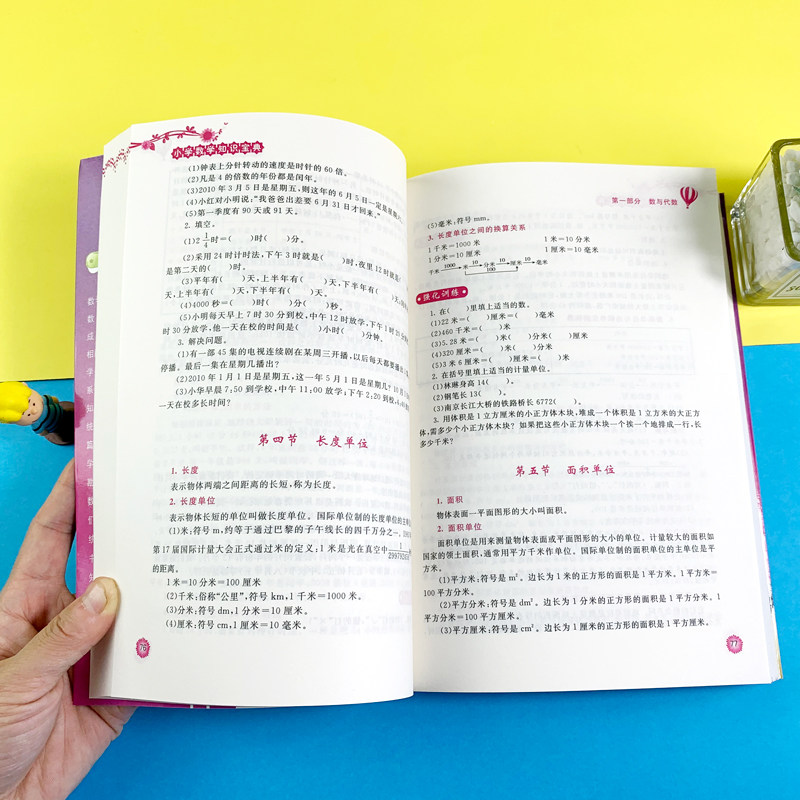 小学数学知识宝典
(1)钟表上分针转动的速度是时针的 60 倍。
(2)凡是4的倍数的年份都是闰年。
(3)2010 年 3 月 5 日是星期五,则这年的 6 月 5 日一定是星期
(4)小红对小明说:"我爸爸出差要 6 月 31 日才回来。"
(5)第一季度有 90 天或 91 天。
2. 填空。
(1)2 1/4 时=( )时( )分。
(2)采用 24 时计时法,下午 3 时就是( )时,夜里 12 时就是
是第二天的( )时。
(3)平年有( )天,上半年有( )天,下半年有(
天,上半年有( )天,下半年有( )天。
(4)4000 秒=( )时( )分( )秒。
(5)小明每天早上 7 时 30 分到校,中午 12 时放学,下午 1 时
时 30 分放学,他一天在校的时间是( )小时( )分钟。
3. 解决问题。
(1)有一部 45 集的电视连续剧在某周三开播,以后每天都要播出
停播。最后一集在星期几播出?
(2)2010 年 1 月 1 日是星期五,这一年 5 月 1 日是星期几?
(3)小华早晨 7:50 到学校,中午 11:00 放学;下午 2:20 到校,
一天在校多长时间?
第四节 长度单位
1. 长度
表示物体两端之间距离的长短,称为长度。
2. 长度单位
表示物体长短的单位叫做长度单位。国际单位制的长度单位的主单
(1)米:符号 m,约等于通过巴黎的子午线长的四千万分之一。
第 17 届国际计量大会正式通过米的定义:1 米是光在真空中
的距离。
1 米=10 分米=100 厘米
(2)千米:俗称"公里",符号 km,1 千米=1000 米。
(3)分米:符号 dm,1 分米=10 厘米。
(4)厘米:符号 cm,1 厘米=10 毫米。
76
第一部分 数与代数
(5)毫米:符号 mm。
3. 长度单位之间的换算关系
1 千米=1000 米 1 米=10 分米
1 分米=10 厘米 1 厘米=10 毫米
千米 1000 米 10 分米 10 厘米 10 毫米
100
强化训练
1. 在( )里填上适当的数。
(1)22 米=( )厘米=( )毫米
(2)460 千米=( )米
(3)5.28 米=( )米( )分米( )厘米
(4)320 厘米=( )米( )分米
(5)3 米 6 厘米=( )厘米=( )毫米
2. 在括号里填上适当的计量单位。
(1)林琳身高 14( )。
(2)钢笔长 13( )。
(3)南京长江大桥的铁路桥长 6772( )。
3. 用体积是 1 立方厘米的小正方体木块,堆成一个体积是 1 立方米的大正方
体,需多少个小正方体木块? 如果把这些小正方体木块一个挨一个地排成一行,长
多少千米?
第五节 面积单位
1. 面积
物体表面—平面图形的大小叫面积。
2. 面积单位
面积单位是用来测量物体表面或平面图形的大小的单位。计量较大的面积如
国家的领土面积,通常用平方千米作单位。国际单位制的面积单位的主单位是平
方米。
(1)平方米:符号是 m²。边长为 1 米的正方形的面积是 1 平方米。1 平方米=
100 平方分米。
(2)平方分米:符号是 dm²。边长为 1 分米的正方形的面积是 1 平方分米。1
平方分米=100 平方厘米。
(3)平方厘米:符号是 cm²。边长为 1 厘米的正方形的面积是 1 平方厘米。
77